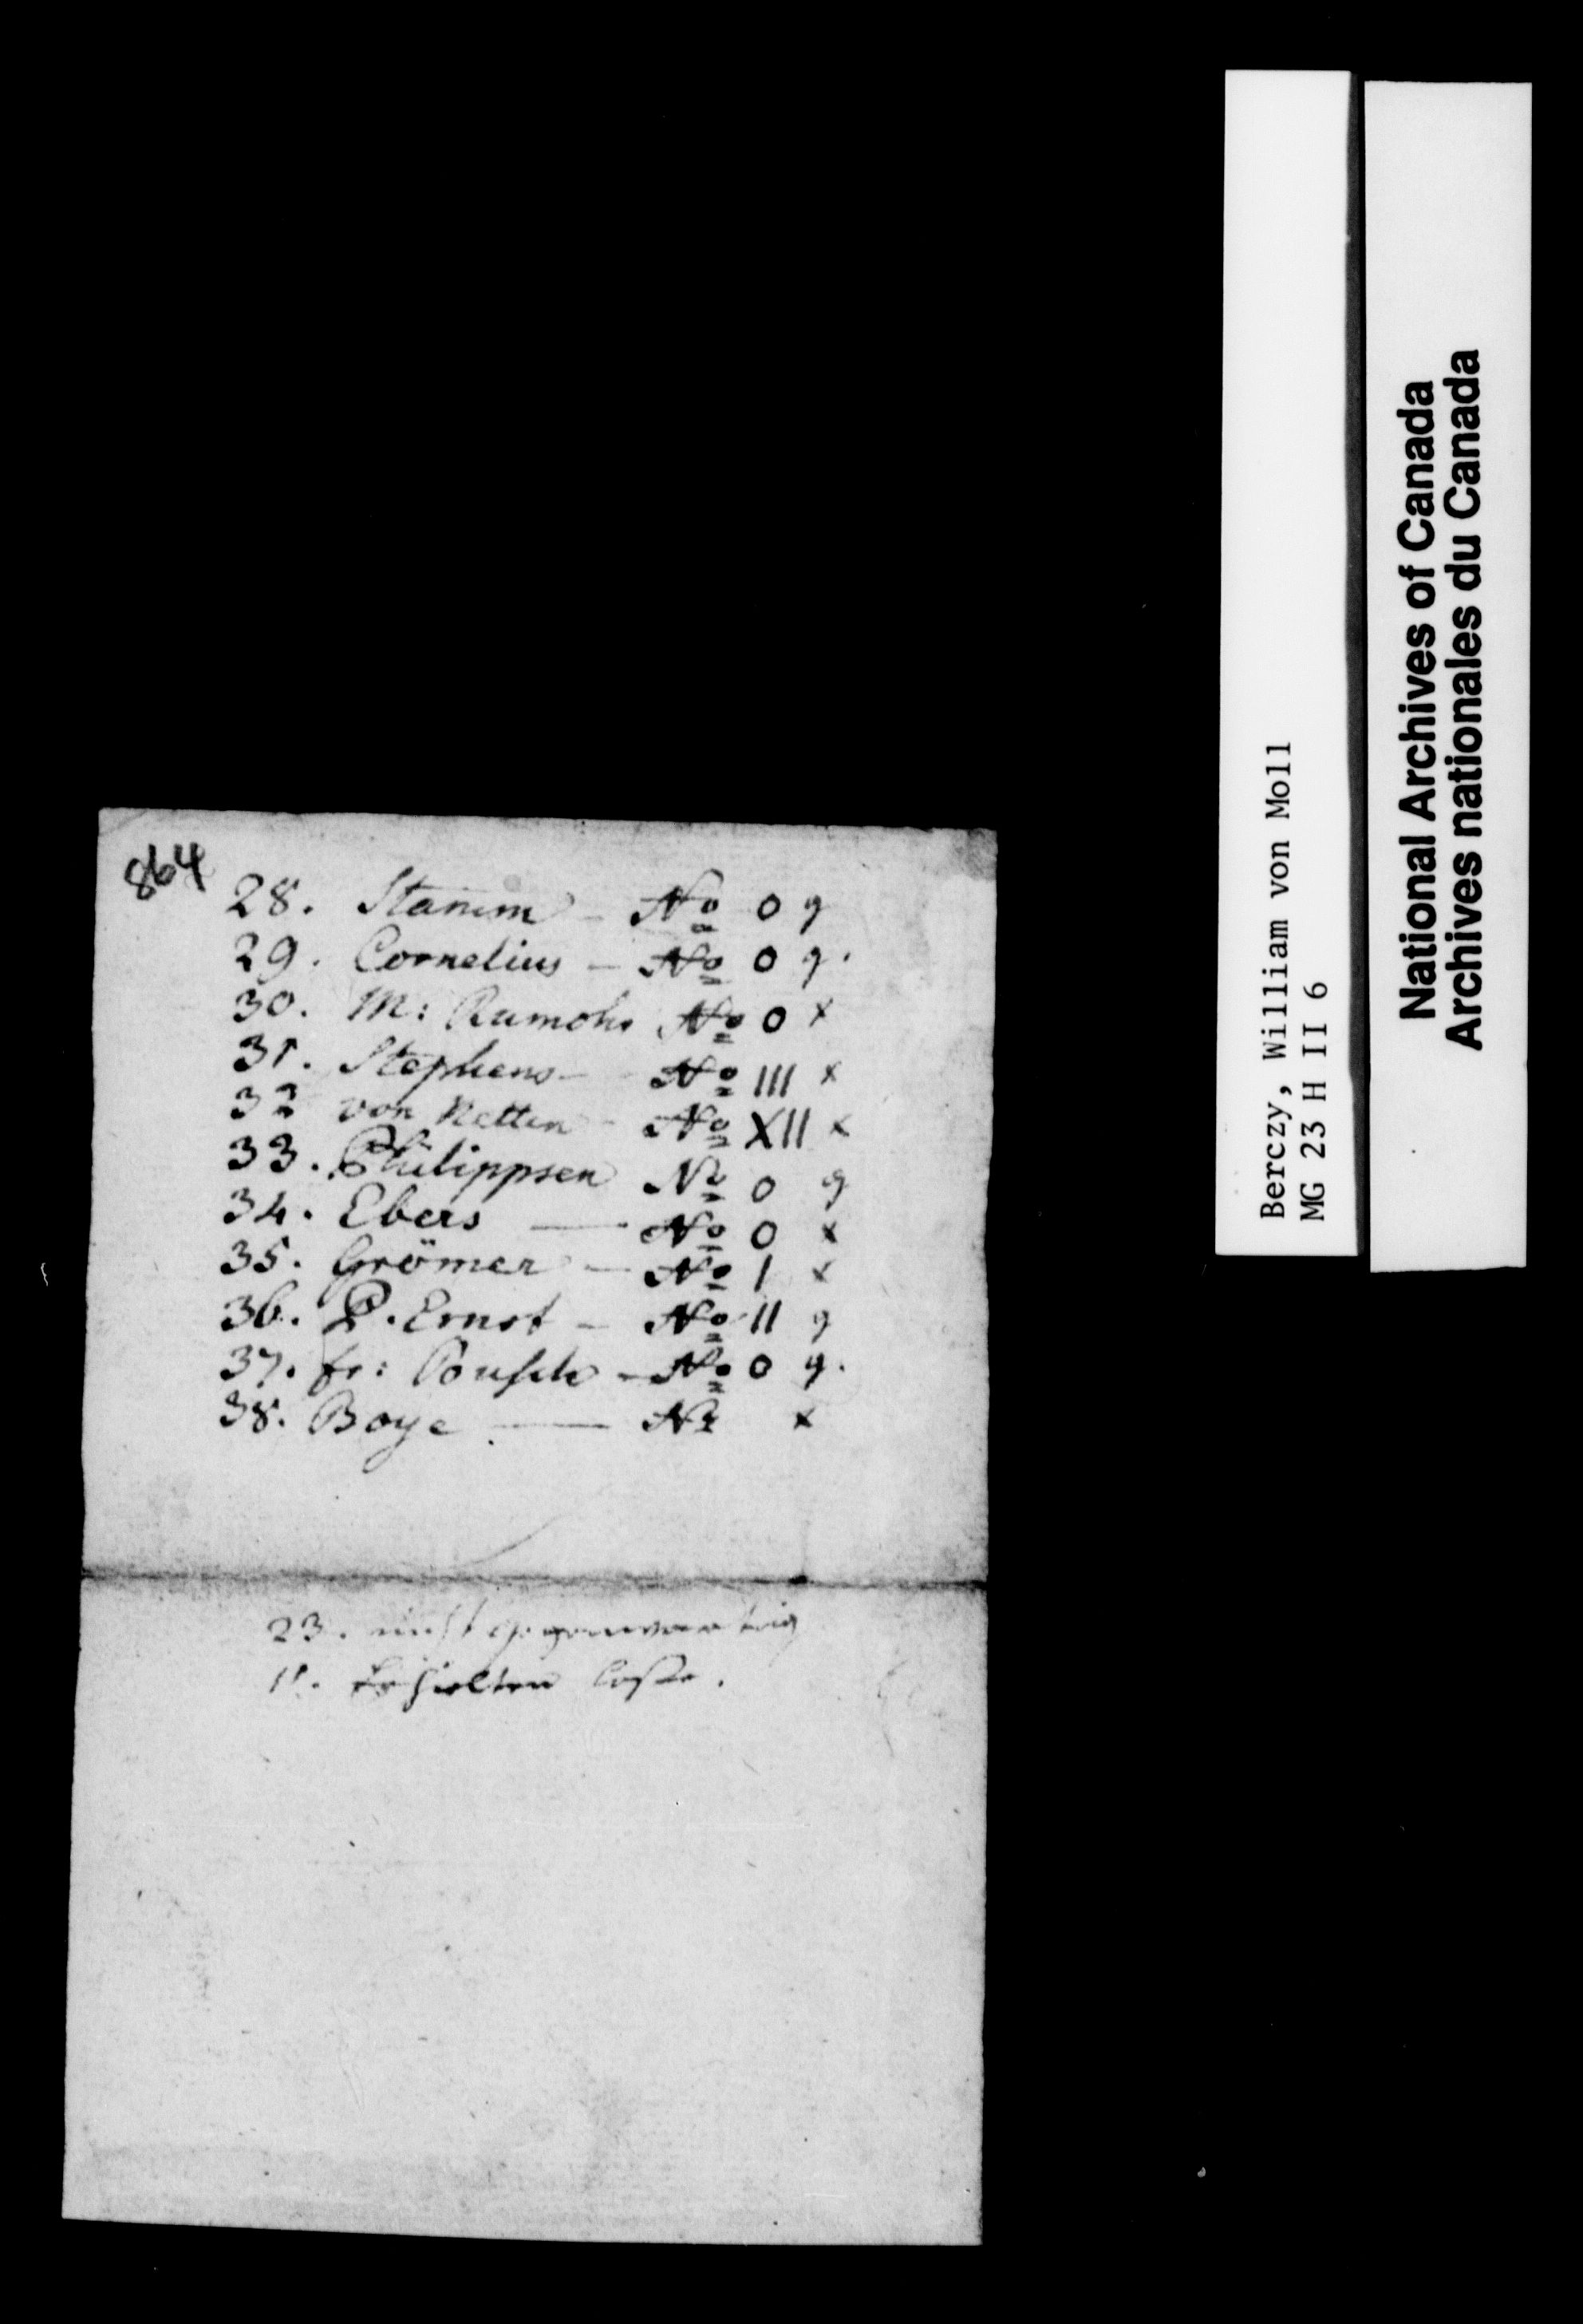 864
28. Stamm – No 0 g
29. Cornelius – No 0 g.
30. M: Rumohr No 0 x
31. Stephens – No III x
32 von Netten – No XII x
33. Philippsen No 0 g
34. Ebers — No 0 x
35. Grömer – No I x
36. P. Ernst – No II g
37. fr: – No 0 g.
38. Boye — No x
23. nicht gegenwartig
11. Erhielten
Berczy, William von Moll
MG 23 H II 6
National Archives of Canada
Archives nationales du Canada